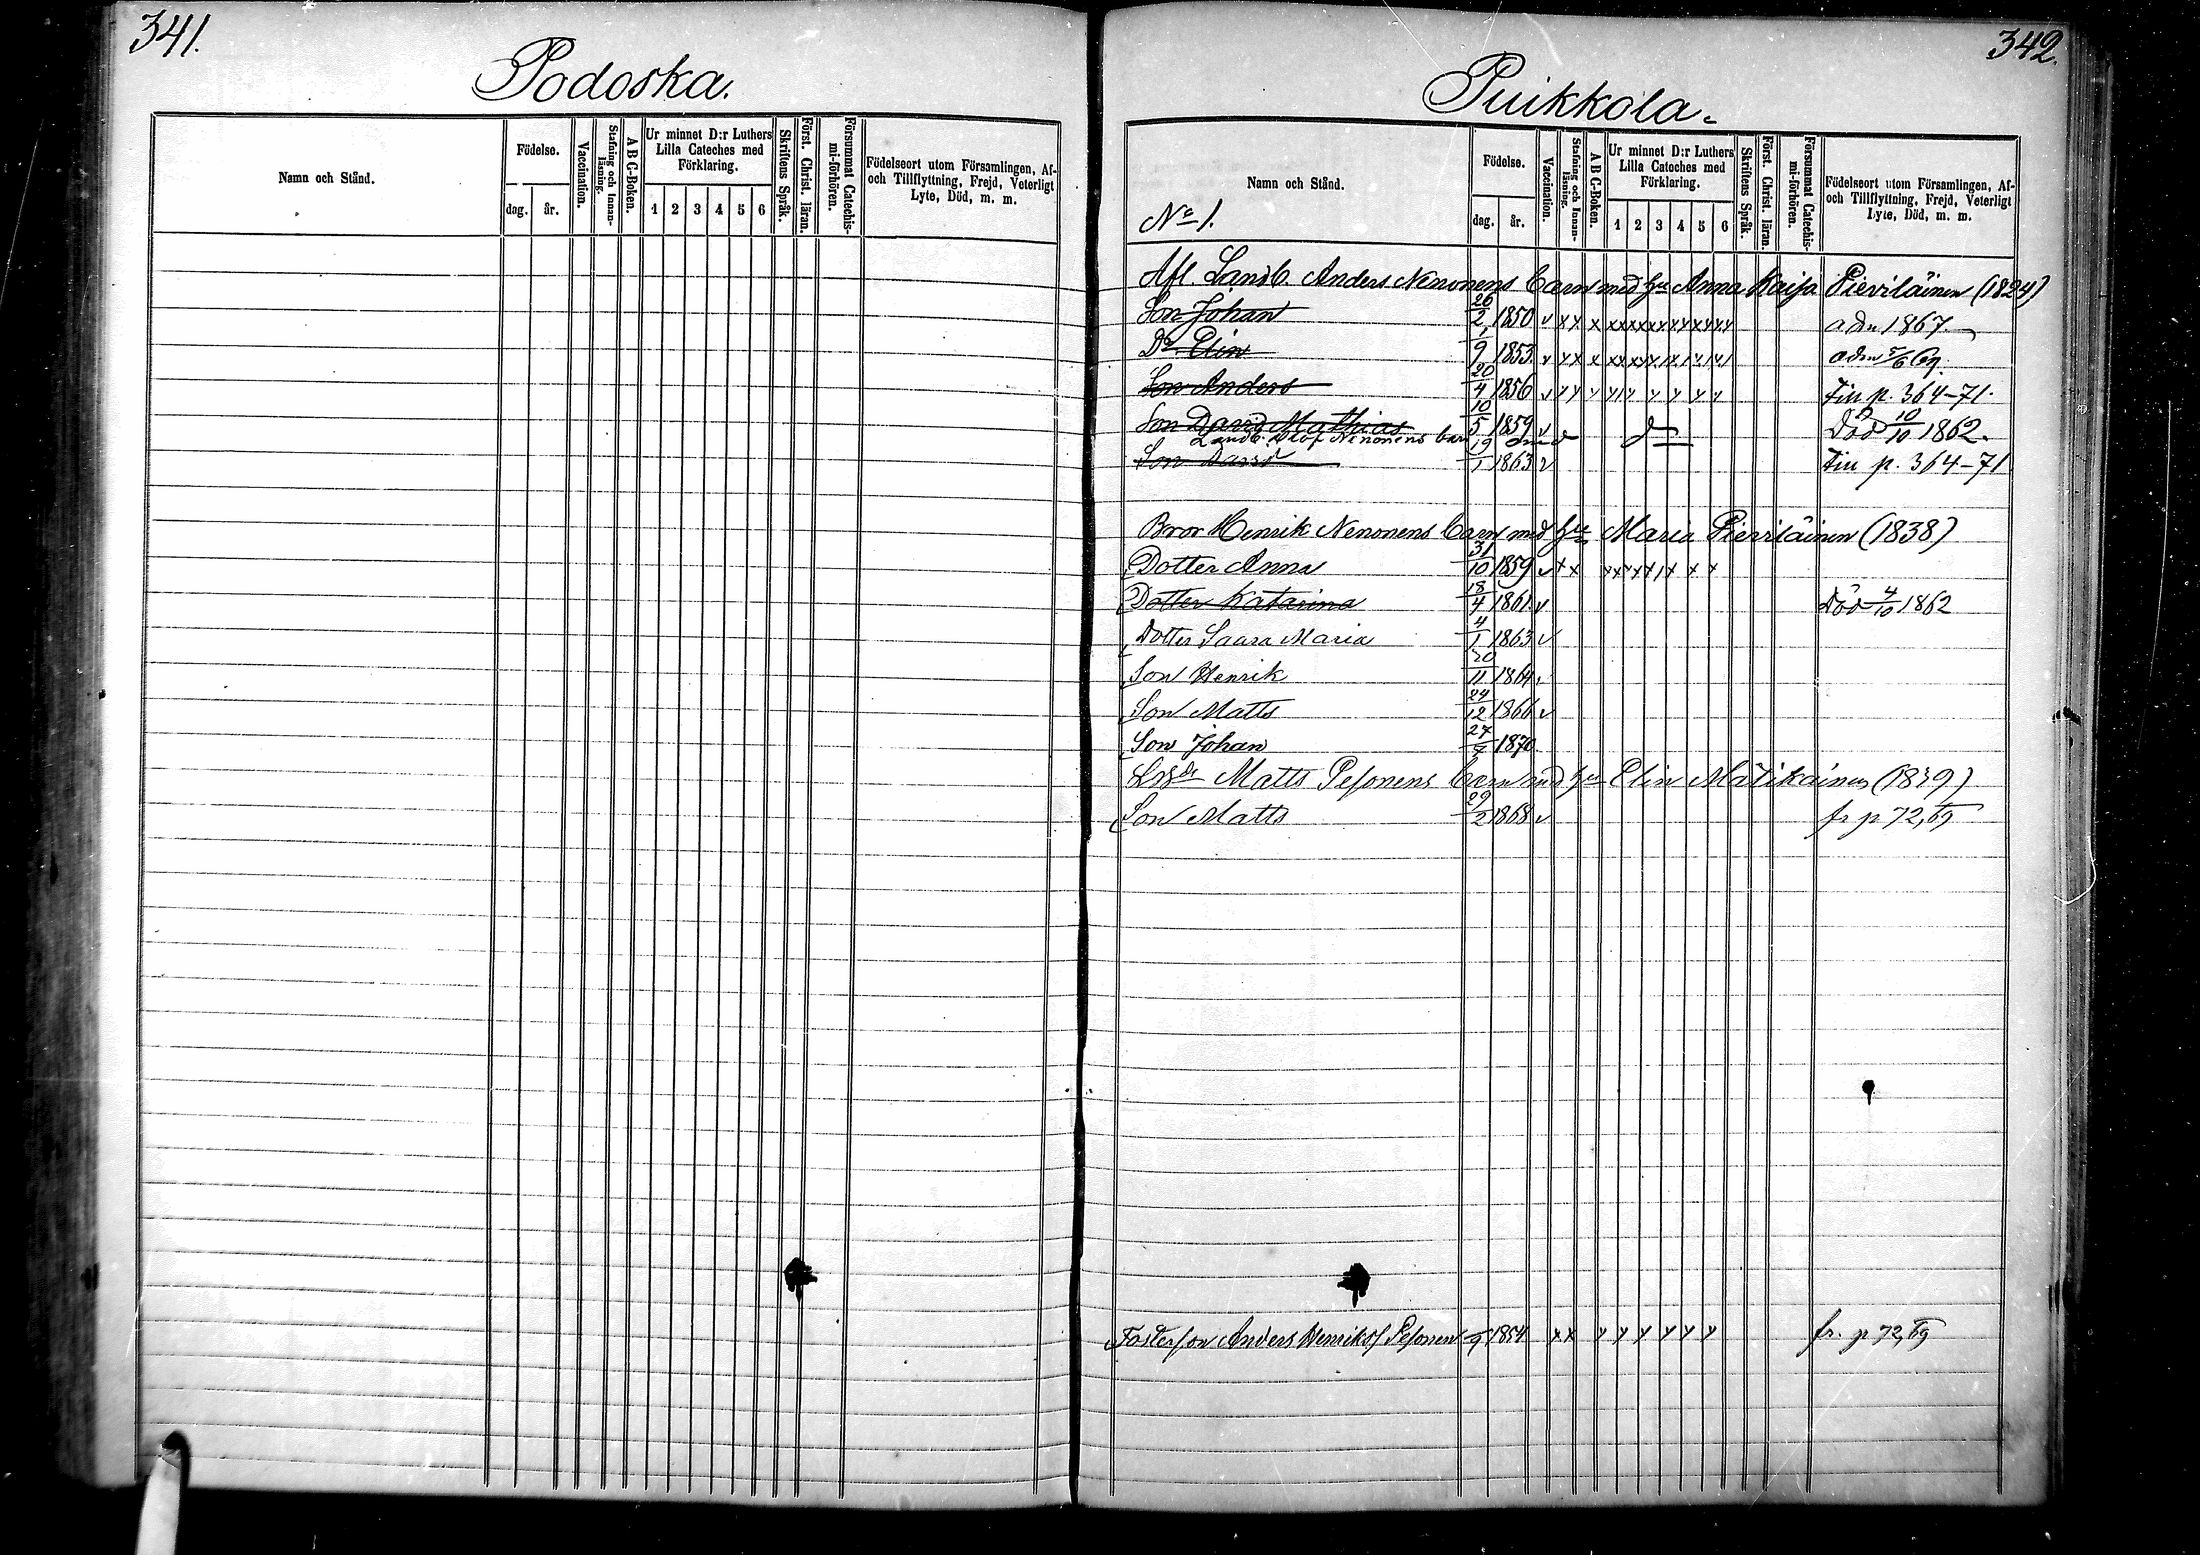 341.
Podoska.
Namn och Stånd.
Födelse.
dag. år.
Vaccination.
Stafning och Innan-läsning.
A B C-Boken.
Ur minnet D:r Luthers
Lilla Cateches med
Förklaring.
1 2 3 4 5 6
Skriftens Språk.
Först. Christ. läran.
Försummat Catechis-mi-förhören.
Födelseort utom Församlingen, Af-
och Tillflyttning, Frejd, Veterligt
Lyte, Död, m. m.
342.
Puikkola.
Namn och Stånd.
No 1.
Födelse.
dag. år.
Vaccination.
Stafning och Innan-läsning.
A B C-Boken.
Ur minnet D:r Luthers
Lilla Cateches med
Förklaring.
1 2 3 4 5 6
Skriftens Språk.
Först. Christ. läran.
Försummat Catechis-mi-förhören.
Födelseort utom Församlingen, Af-
och Tillflyttning, Frejd, Veterligt
Lyte, Död, m. m.
Afl. Landb. Anders Nenonens barn med hu Anna Kaisa Pieviläinen (1824)
Son Johan 26/2 1850 v x x x xx xx xx xx xx xx adm 1867.
Dr Elin 1/9 1853 v x x x adm 5/6 69.
Son Anders 20/4 1856 v Till p. 364-71.
Son David Mathias 10/5 1859 v Död 10/10 1862.
Landb. Olof Nenonens barn
Son 19/1 1863 v Till p. 364-71
Bror Henrik Nenonens barn med hu Maria Pieviläinen (1838)
Dotter Anna 31/10 1859 v x x
Dotter Katarina 18/4 1861 v Död 4/10 1862
Dotter Saara Maria 4/1 1863 v
Son Henrik 20/11 1864 v
Son Matts 24/12 1866 v
Son Johan 27/7 1870
Matts Pesonens barn med hu Elin Mätikäinen (1839)
Son Matts 29/2 1868 v fr p 72,69
Fosterson Anders Henrikss Pesonen /9 1854 x x fr. p 72,69